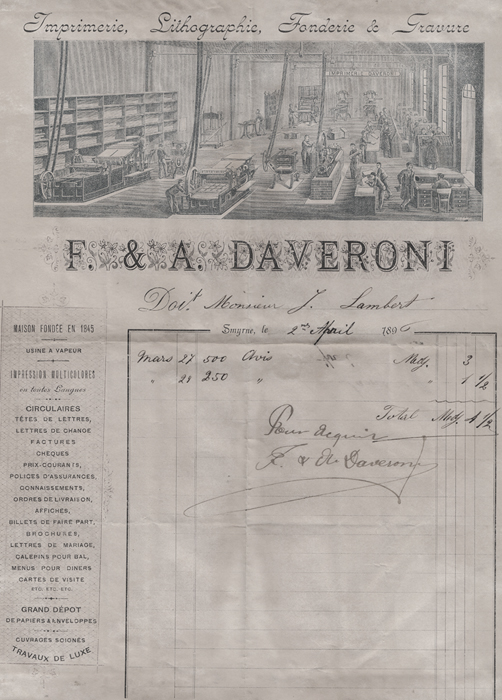 Imprimerie, Lithographie, Fonderie & Gravure
IMPRIMERIE DAVERONI
F. & A. DAVERONI
Doit Monsieur J. Lambert
Smyrne, le 2 April 1896
MAISON FONDÉE EN 1845
USINE A VAPEUR
IMPRESSION MULTICOLORES
en toutes Langues
CIRCULAIRES
TÊTES DE LETTRES,
LETTRES DE CHANGE
FACTURES
CHÈQUES
PRIX-COURANTS,
POLICES D'ASSURANCES,
CONNAISSEMENTS,
ORDRES DE LIVRAISON,
AFFICHES,
BILLETS DE FAIRE PART,
BROCHURES,
LETTRES DE MARIAGE,
CALEPINS POUR BAL,
MENUS POUR DINERS
CARTES DE VISITE
ETC. ETC. ETC.
GRAND DÉPOT
DE PAPIERS & ENVELOPPES
OUVRAGES SOIGNÉS
TRAVAUX DE LUXE
Mars 27 500 Avis Medj. 3
" 28 250 " " 1 1/2
Total Medj. 4 1/2
Pour acquit
F. & A. Daveroni